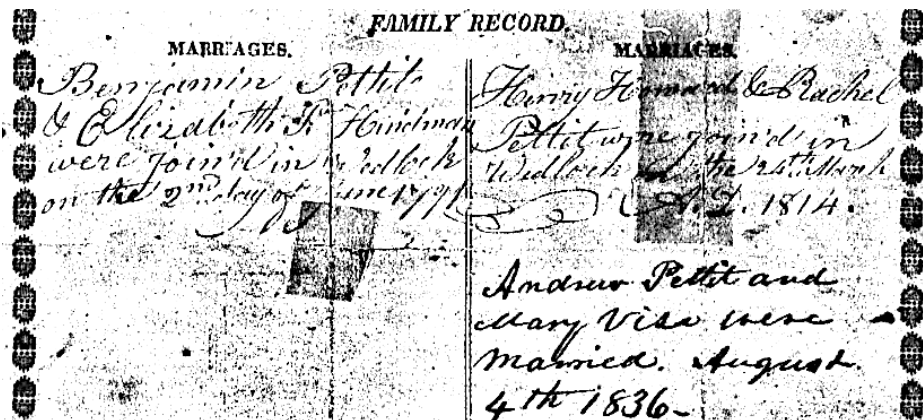 FAMILY RECORD.
MARRIAGES.
Benjamin Pettit
& Elizabeth Hindman
were join'd in Wedlock
on the 2nd day of June
MARRIAGES.
Henry Howard & Rachel
Pettit were join'd in
Wedlock on the 24th March
A.D. 1814.
Andrew Pettit and
Mary Visa were
married. August
4th 1836-